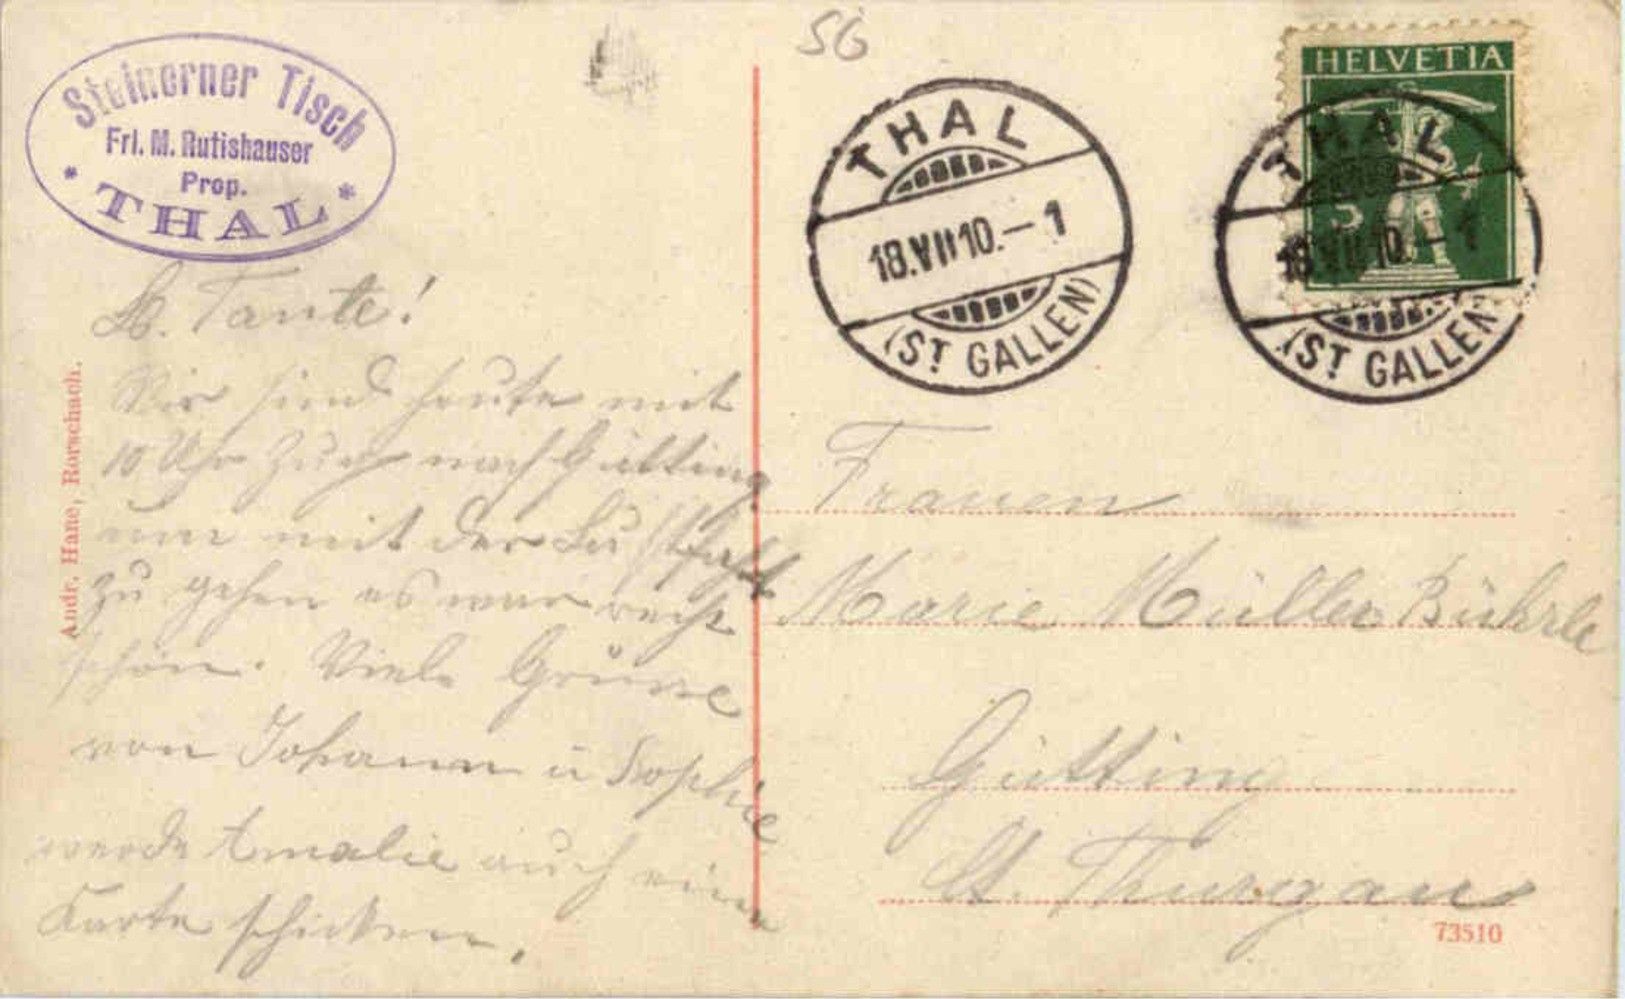 Steinerner Tisch
Frl. M. Rutishauser
Prop.
* THAL *
56
HELVETIA
THAL
18.VII10.–1
(ST GALLEN)
THAL
18.VII10.–1
(ST GALLEN)
Andr. Hane, Rorschach.
Lb. Tante!
Wir sind heute mit
10 Uhr Zug nach Gütting
um mit der
zu gehen es war recht
schön. Viele Grüsse
von Johann u Sophie
werde Amalie auch eine
Karte schicken.
Frauen
Marie Müller Bührle
Gütting
Kt. Thurgau
73510